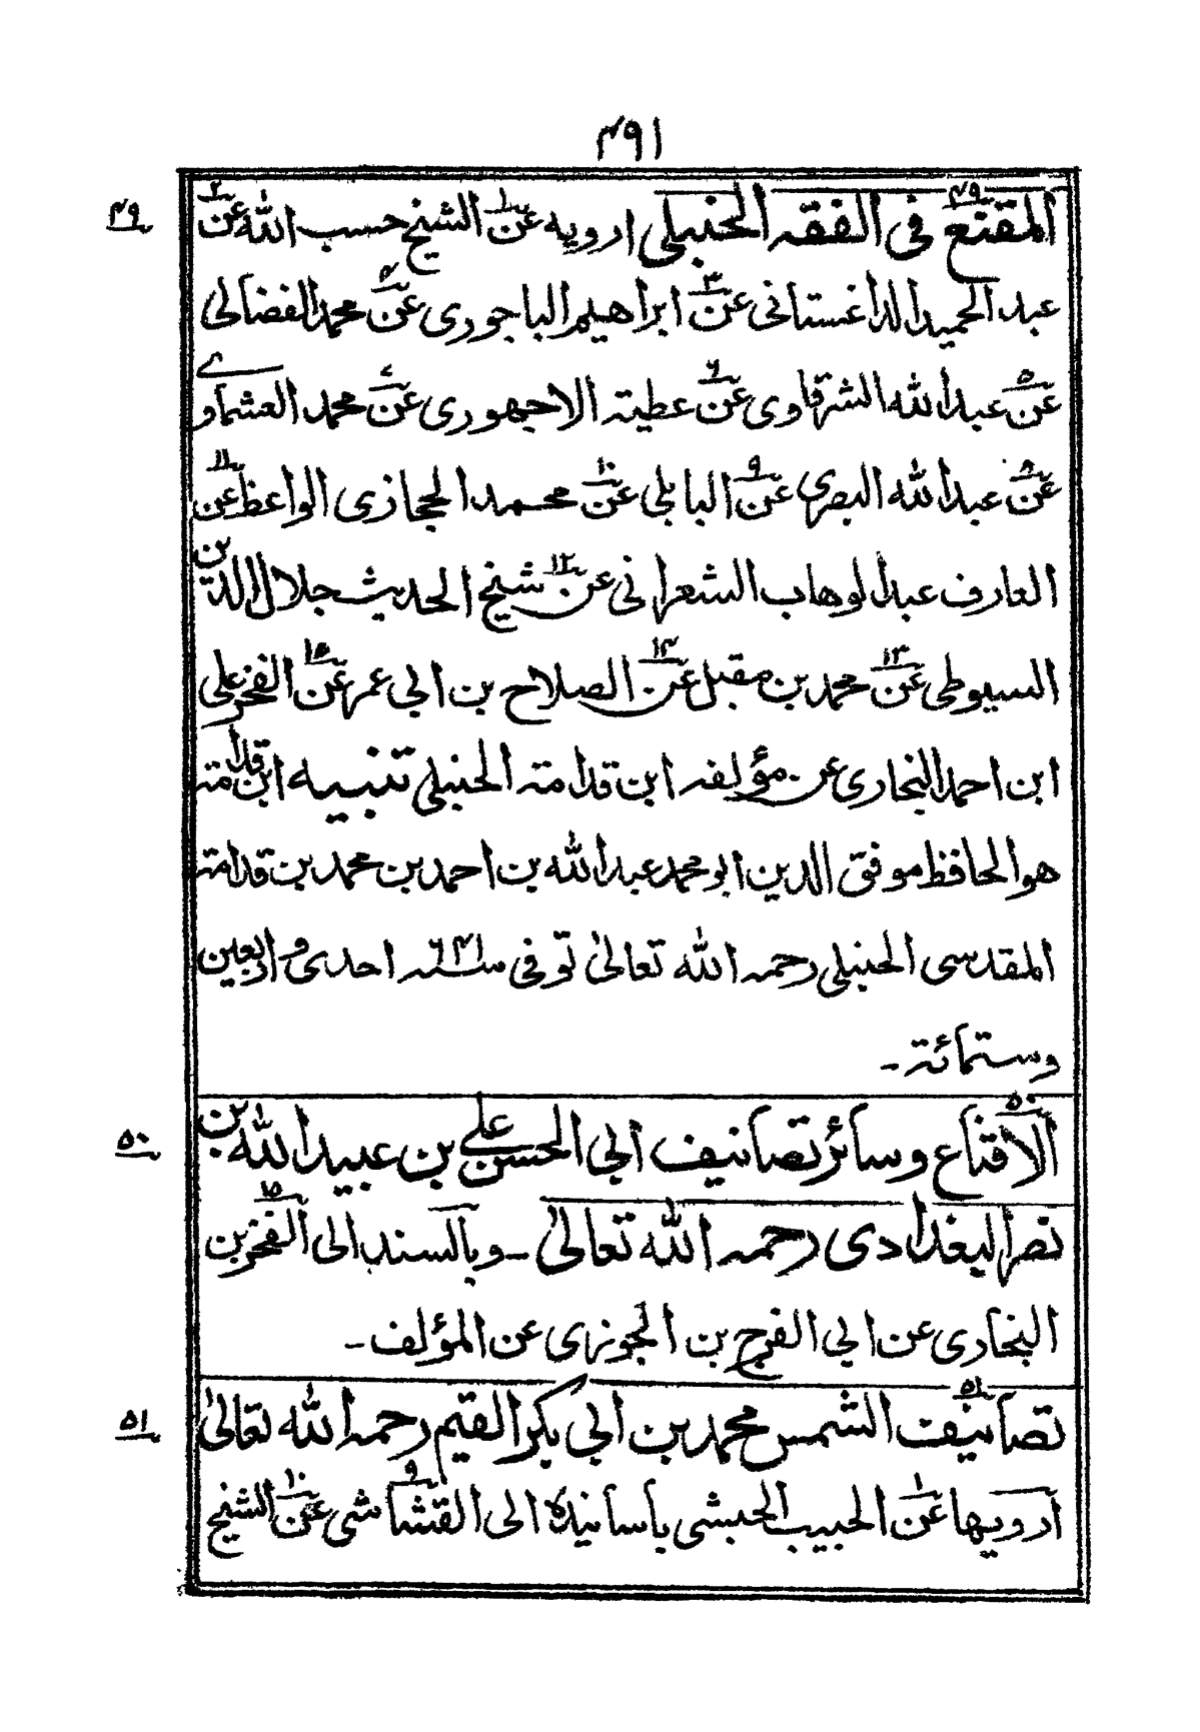 ۴۹۱
۴۹ المقنع في الفقہ الحنبلی ارویہ عن الشیخ حسب اللہ عن
عبد الحمید الداغستانی عن ابراھیم الباجوری عن محمد الفضالی
عن عبد اللہ الشرقاوی عن عطیتہ الاجھوری عن محمد العشماوی
عن عبد اللہ البصری عن البابلی عن محمد الحجازی الواعظ عن
العارف عبد الوھاب الشعرانی عن شیخ الحدیث جلال الدین
السیوطی عن محمد بن مقبل عن الصلاح بن ابی عمر عن الفخر علی
ابن احمد البخاری عن مؤلفہ ابن قدامتہ الحنبلی تنبیہ ابن قدامتہ
ھو الحافظ موفق الدین ابو محمد عبد اللہ بن احمد بن محمد بن قدامتہ
المقدسی الحنبلی رحمہ اللہ تعالیٰ توفی سنہ ۶۴۱ احدی و اربعین
وستمائة ۔
۵۰ الاقناع وسائر تصانیف ابی الحسن علی بن عبید اللہ بن
نصر البغدادی رحمہ اللہ تعالیٰ ۔ وبالسند الی الفخر بن
البخاری عن ابی الفرج بن الجوزی عن المؤلف ۔
۵۱ تصانیف الشمس محمد بن ابی بکر القیم رحمہ اللہ تعالیٰ
ارویھا عن الحبیب الحبشی بأسانیدہ الی القشاشی عن الشیخ